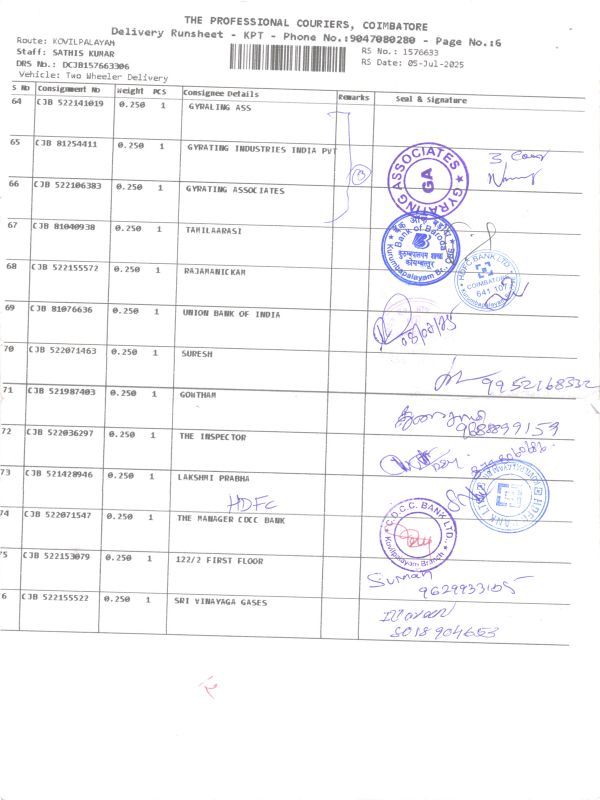 THE PROFESSIONAL COURIERS, COIMBATORE
Delivery Runsheet - KPT - Phone No.:9047080280 - Page No.:6
Route: KOVILPALAYAM
Staff: SATHIS KUMAR
DRS No.: DCJB157663306
Vehicle: Two Wheeler Delivery
RS No.: 1576633
RS Date: 05-Jul-2025
S No Consignment No Weight PCS Consignee Details Remarks Seal & Signature
64 CJB 522141019 0.250 1 GYRALING ASS
65 CJB 81254411 0.250 1 GYRATING INDUSTRIES INDIA PVT
3
GYRATING ASSOCIATES
GA
66 CJB 522106383 0.250 1 GYRATING ASSOCIATES
67 CJB 81040938 0.250 1 TAMILAARASI
बैंक ऑफ़ बड़ौदा
Bank of Baroda
Kurumbapalayam Br.
68 CJB 522155572 0.250 1 RAJAMANICKAM
HDFC BANK LTD.
COIMBATORE
641 107
Kurumbapalayam
69 CJB 81076636 0.250 1 UNION BANK OF INDIA
70 CJB 522071463 0.250 1 SURESH
9952168332
71 CJB 521987403 0.250 1 GOWTHAM
9688899159
72 CJB 522036297 0.250 1 THE INSPECTOR
73 CJB 521428946 0.250 1 LAKSHMI PRABHA
HDFC
HDFC BANK LTD
74 CJB 522071547 0.250 1 THE MANAGER CDCC BANK
C.D.C.C. BANK LTD.,
Kovilpalayam Branch
75 CJB 522153079 0.250 1 122/2 FIRST FLOOR
Suman
9629933105
6 CJB 522155522 0.250 1 SRI VINAYAGA GASES
8018904653